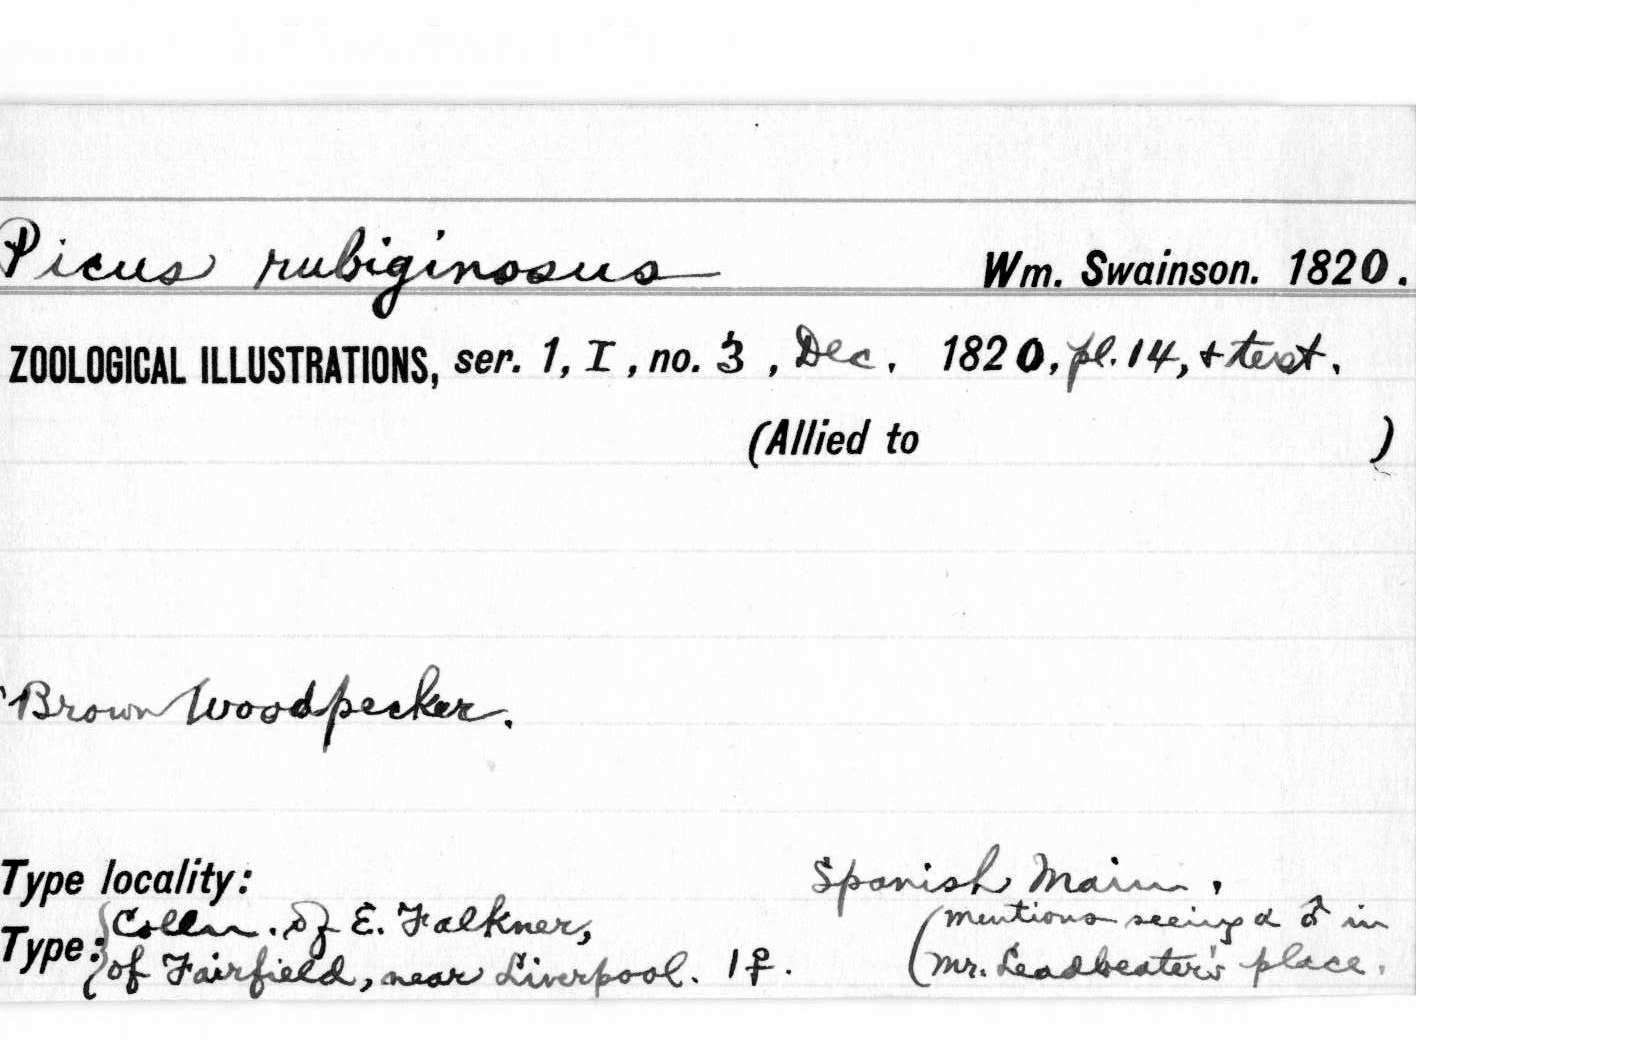 Picus rubiginosus Wm. Swainson. 1820.
ZOOLOGICAL ILLUSTRATIONS, ser. 1, I, no. 3, Dec. 1820, pl. 14, + text.
(Allied to )
'Brown Woodpecker.
Type locality: Spanish Main.
Type: {Colln. of E. Falkner, (mentions seeing a ♂ in
{of Fairfield, near Liverpool. 1♀. (Mr. Leadbeater's place.